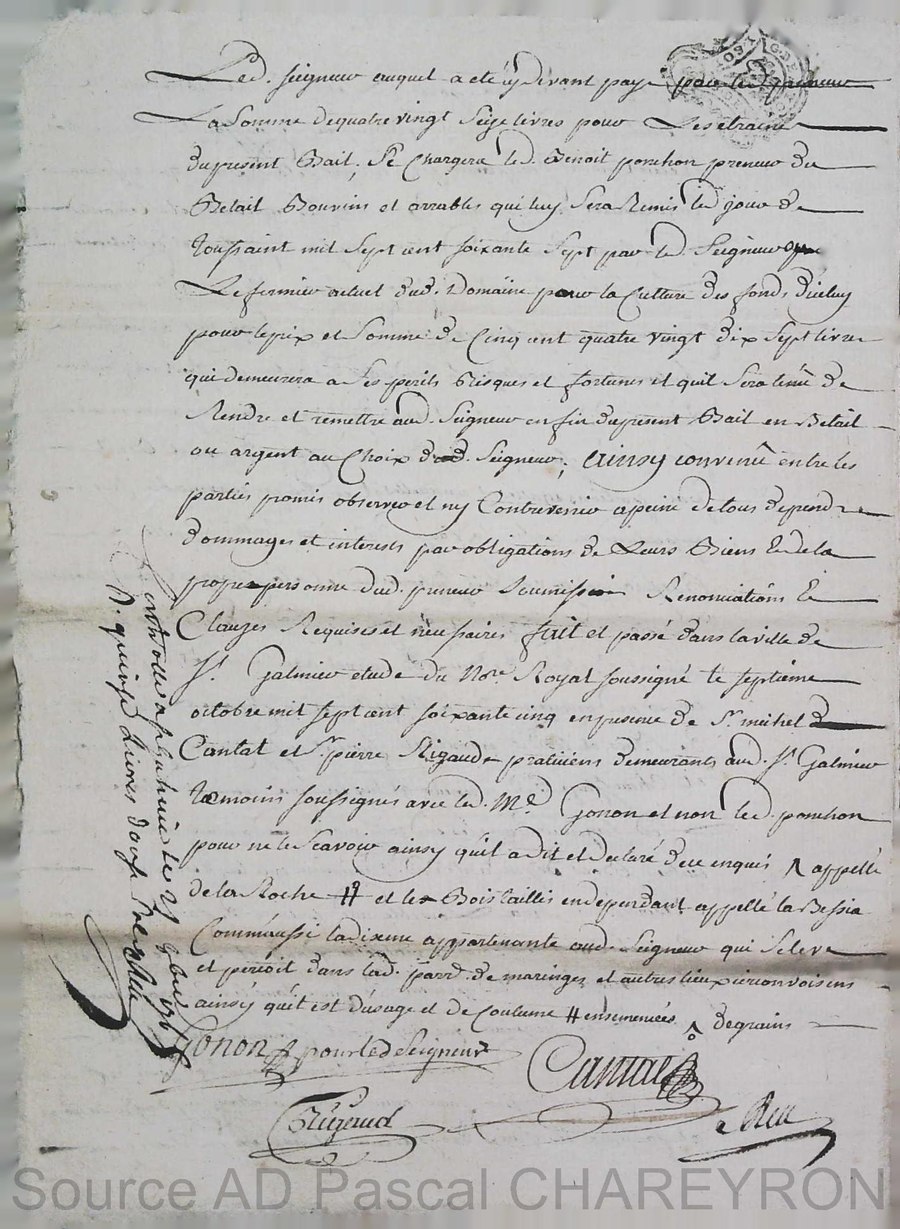 Led. seigneur auquel a eté cy devant payé par led. preneur
La somme de quatre vingt seize livres pour Les etraine
du present Bail, Se Chargera led. Benoit ponchon preneur du
Betail Bouvins et arrables qui luy Sera Remis led. jour de
toussaint mil sept cent soixante sept par led. Seigneur ou
Le fermier actuel dud. Domaine pour la Culture des fonds d'iceluy
pour le prix et Somme de Cinq cent quatre vingt dix sept livres
qui demeurera a ses perils Risques et fortunes et quil sera tenu de
Rendre et remettre aud. Seigneur en fin du present Bail en Betail
ou argent au Choix dud. Seigneur; ainsy convenu entre les
parties promis observer et ny Contrevenir a peine de tous depend
dommages et interests par obligations de Leurs Biens et de la
propre personne dud. preneur soumission Renonciations et
Clauzes Requises et necessaires fait et passé dans la ville de
St. Galmier etude du Nore. Royal soussigné le septième
octobre mil sept cent soixante cinq en presence de Sr. michel
Cantat et Sr. pierre Rigaud praticiens demeurants aud. St. Galmier
temoins soussignés avec led. Me. Gonon et non led. ponchon
pour ne le Scavoir ainsy qu'il a dit et declaré de ce enquis ^ appellé
de la Roche # et les Bois taillis en dependant appellé la Bessia
Comm'aussi la dixme appartenante aud. Seigneur qui Se leve
et percoit dans lad. parr. de maringes et autres lieux circonvoisins
ainsy qu'il est d'usage et de Coutume # ensemencés ^ de grains
Gonon pour led Seigneur
Cantat
Rigaud
Controllé a St. Galmier le
R. quinze Livres douze
Source AD Pascal CHAREYRON